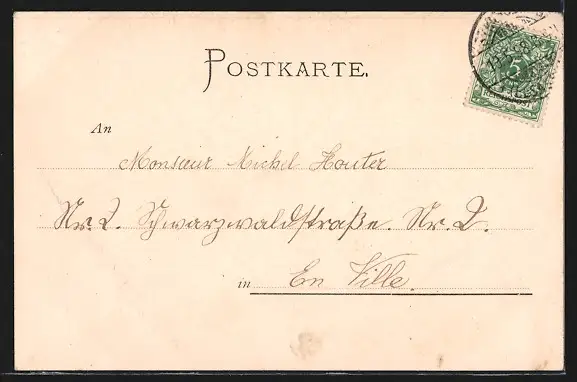 POSTKARTE.
5
An
Monsieur Michel Houter
Nr. 2. Schwarzwaldstraße. Nr. 2.
in En Ville.